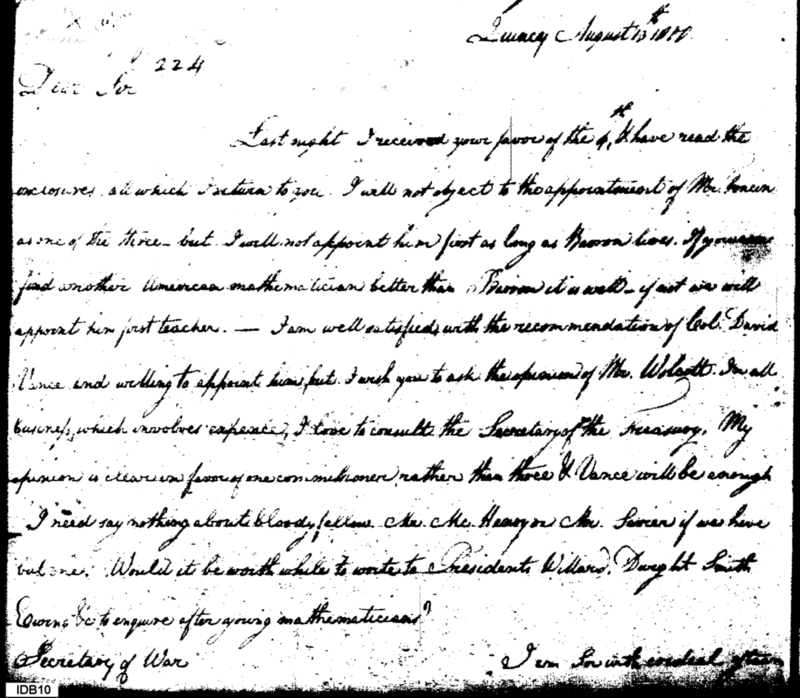 Quincy August 13th 1800
224
Dear Sir
Last night I received your favor of the 4th, & have read the
enclosures all which I return to you. I will not object to the appointment of Mr.
as one of the three – but I will not appoint him first as long as Barron lives. If you can
find another American mathematician better than Barron it is well – if not we will
appoint him first teacher. — I am well satisfied with the recommendation of Col. David
Vance and willing to appoint him, but I wish you to ask the opinion of Mr. Wolcott. In all
business, which involves expence, I love to consult the Secretary of the treasury. My
opinion is clear in favor of one commissioner rather than three & Vance will be enough
I need say nothing about bloody fellow Mr. Mc Henry or Mr. Sevier if we have
but one. Would it be worth while to write to Presidents Willard, Dwight Smith
Ewing &c to enquire after young mathematicians?
Secretary of War
I am Sir with cordial esteem
IDB10